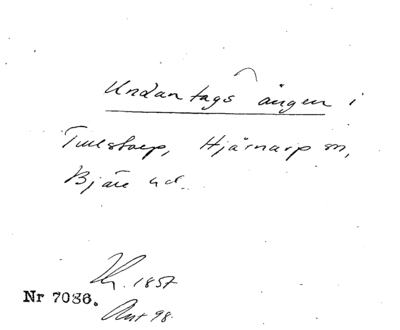 Undantagsängen i
Tullstorp, Hjärnarp sn,
Bjäre hd.
Kr. 1857
Nr 7086.
Ant 98.